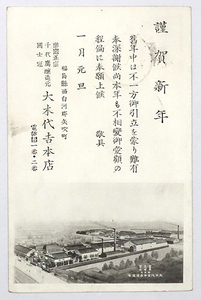 謹賀新年
舊年中は不一方御引立を蒙り難有
奉深謝候尚本年も不相變御愛顧の
程偏に奉願上候　敬具
一月元旦
福島縣西白河郡矢吹町
千代萬釀造元
大木代吉本店
電話一番・二番